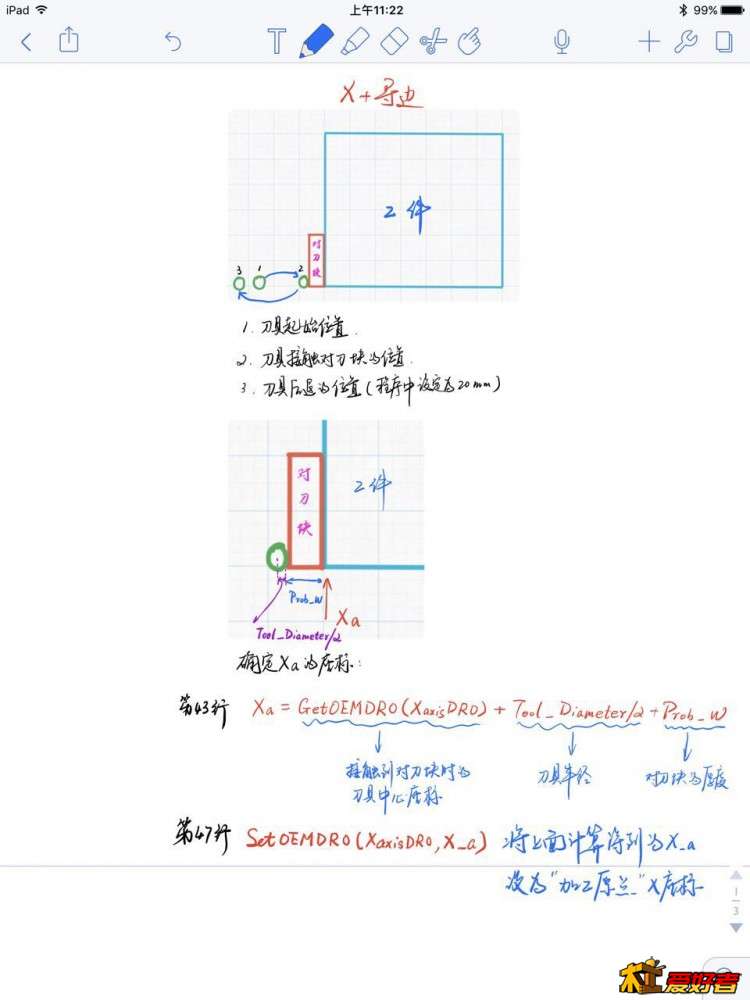 iPad
上午11:22
99%
T
X+寻边
工件
对刀块
3 1 2
1. 刀具起始位置.
2. 刀具接触对刀块的位置.
3. 刀具后退的位置(程序中设定为20mm)
对刀块
工件
Prob_W
Xa
Tool_Diameter/2
确定Xa的座标:
第43行 Xa = GetOEMDRO(XaxisDRO) + Tool_Diameter/2 + Prob_W
接触到对刀块时的刀具中心座标
刀具半径
对刀块的厚度
第47行 SetOEMDRO(XaxisDRO, X_a) 将上面计算得到的X_a
设为"加工原点"X座标
1
3
木工爱好者